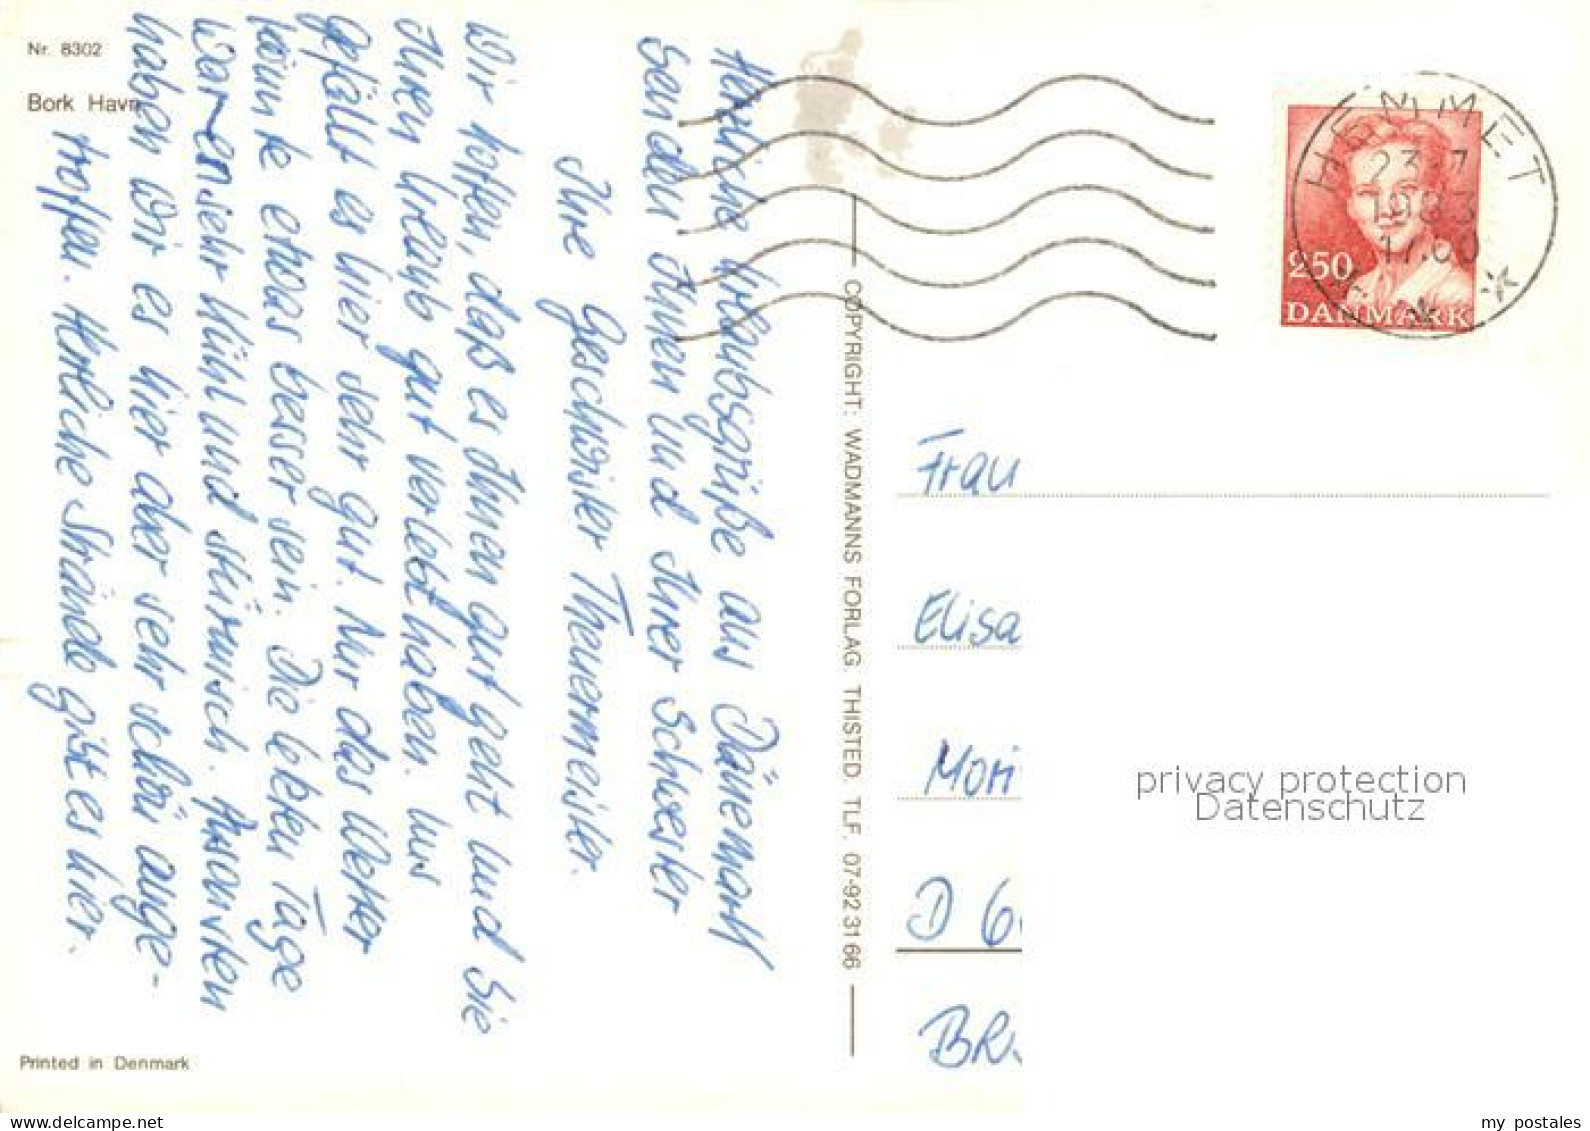 Nr. 8302
Bork Havn
Herzliche Urlaubsgrüße aus Dänemark
senden Ihnen und Ihrer Schwester
Ihre Geschwister Theuermeister.
Wir hoffen, daß es Ihnen gut geht und Sie
Ihren Urlaub gut verlebt haben. Uns
gefällt es hier sehr gut. Nur das Wetter
könnte etwas besser sein. Die letzten Tage
waren sehr kühl und stürmisch. Ansonsten
haben wir es hier aber sehr schön ange-
troffen. Herrliche Strände gibt es hier.
Printed in Denmark
COPYRIGHT: WADMANNS FORLAG. THISTED. TLF. 07-92 31 66
HEMMET
23.7
1983
17.00
250
DANMARK
Frau
Elisa
Mori
D 6
BR
privacy protection
Datenschutz
my postales